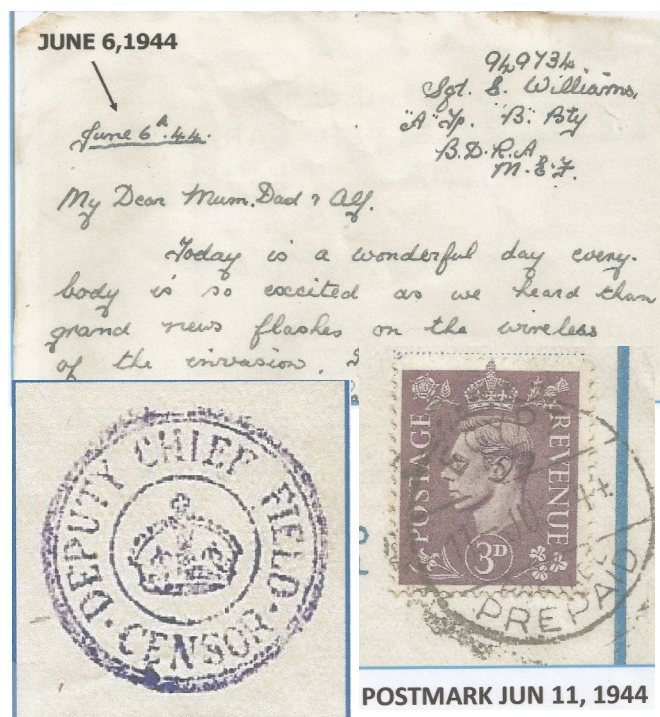 JUNE 6,1944
949734.
Sgt. E. Williams,
"A" Tp. "B" Bty
B.D.R.A
M.E.F.
June 6th. 44.
My Dear Mum, Dad & Alf.
Today is a wonderful day every-
body is so excited as we heard than
grand news flashes on the wireless
of the invasion.
DEPUTY CHIEF FIELD
CENSOR
POSTAGE
REVENUE
3D
PREPAID
POSTMARK JUN 11, 1944